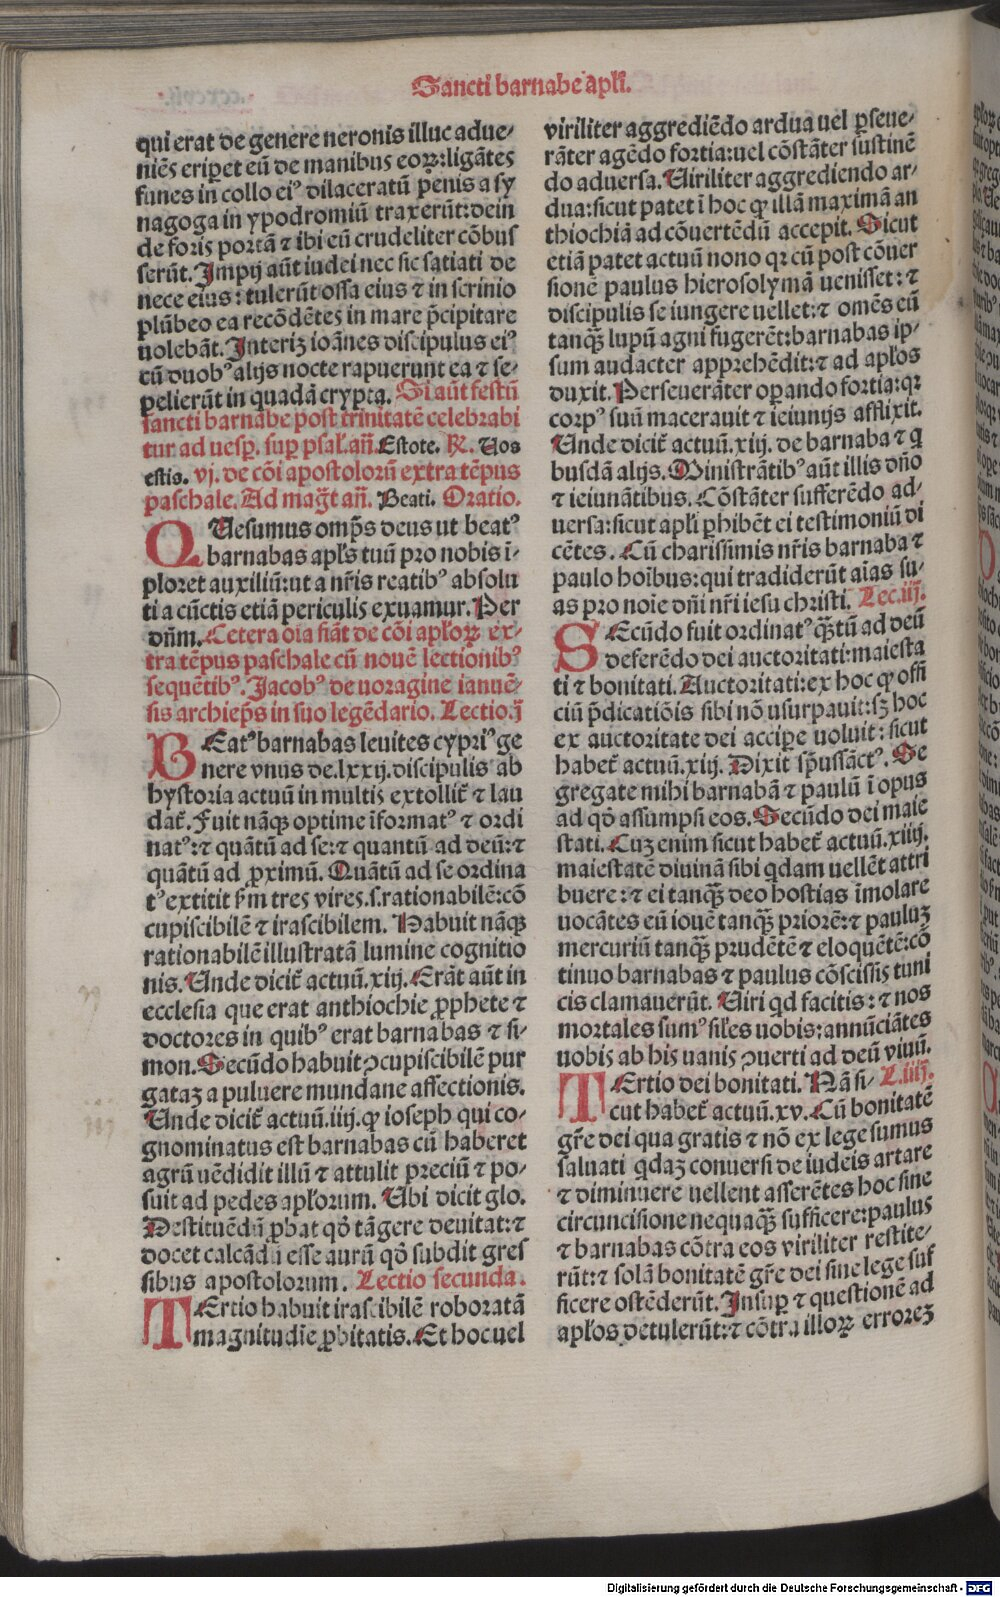 Sancti barnabe apl̄i.
qui erat de genere neronis illuc adue-
niēs eriꝑet eū de manibus eoꝝ:ligātes
funes in collo eiꝰ dilaceratū penis a sy
nagoga in ypodromiū traxerūt:dein
de foris portā ⁊ ibi eū crudeliter cōbus
serūt. Impij aūt iudei nec sic satiati de
nece eius: tulerūt ossa eius ⁊ in scrinio
plūbeo ea recōdētes in mare p̄cipitare
uolebāt. Interiz ioānes discipulus eiꝰ
cū duobꝰ alijs nocte rapuerunt ea ⁊ se-
pelierūt in quadā crypta. Si aūt festū
sancti barnabe post trinitatē celebrabi
tur ad uesꝑ. suꝑ psal. añ. Estote. ℟. Vos
estis. vj. de cōi apostolorū extra tēpus
paschale. Ad maḡt añ. Beati. Oratio.
QVesumus omp̄s deus ut beatꝰ
barnabas apl̄s tuū pro nobis ī-
ploret auxiliū:ut a nr̄is reatibꝰ absolu
ti a cūctis etiā periculis exuamur. Per
dn̄m. Cetera oīa fiāt de cōi apl̄oꝝ ex-
tra tēpus paschale cū nouē lectionibꝰ
sequētibꝰ. Jacobꝰ de uoragine ianuē-
sis archiep̄s in suo legēdario. Lectio.j
BEatꝰ barnabas leuites cypriꝰ ge
nere vnus de.lxxij.discipulis ab
hystoria actuū in multis extollit̄ ⁊ lau
dat̄. Fuit nāqꝫ optime īformatꝰ ⁊ ordi
natꝰ:⁊ quātū ad se:⁊ quantū ad deū:⁊
quātū ad ꝓximū. Quātū ad se ordina
tꝰ extitit ẜm tres vires.s.rationabilē:cō
cupiscibilē ⁊ irascibilem. Habuit nāqꝫ
rationabilē illustratā lumine cognitio
nis. Unde dicit̄ actuū.xiij. Erāt aūt in
ecclesia que erat anthiochie ꝓphete ⁊
doctores in quibꝰ erat barnabas ⁊ si-
mon. Secūdo habuit ꝯcupiscibilē pur
gataꝫ a puluere mundane affectionis.
Unde dicit̄ actuū.iiij. ꝙ ioseph qui co-
gnominatus est barnabas cū haberet
agrū uēdidit illū ⁊ attulit preciū ⁊ po-
suit ad pedes apl̄orum. Ubi dicit glo.
Destituēdū ꝓbat qō tāgere deuitat:⁊
docet calcādū esse aurū qō subdit gres
sibus apostolorum. Lectio secunda.
TErtio habuit irascibilē roboratā
magnitudīe ꝓbitatis. Et hoc uel
viriliter aggrediēdo ardua uel ꝑseue-
rāter agēdo fortia:uel cōstāter sustinē
do aduersa. Viriliter aggrediendo ar-
dua:sicut patet ī hoc ꝙ illā maximā an
thiochiā ad cōuertēdū accepit. Sicut
etiā patet actuū nono qꝛ cū post cōuer
sionē paulus hierosolymā uenisset:⁊
discipulis se iungere uellet:⁊ omēs eū
tanqꝫ lupū agni fugerēt:barnabas ip-
sum audacter apprehēdit:⁊ ad apl̄os
duxit. Perseuerāter oꝑando fortia:qꝛ
corpꝰ suū macerauit ⁊ ieiunijs afflixit.
Unde dicit̄ actuū.xiij. de barnaba ⁊ q
busdā alijs. Ministrātibꝰ aūt illis dn̄o
⁊ ieiunātibus. Cōstāter sufferēdo ad-
uersa:sicut apl̄i ꝑhibēt ei testimoniū di
cētes. Cū charissimis nr̄is barnaba ⁊
paulo hoībus:qui tradiderūt aīas su-
as pro noīe dn̄i nr̄i iesu christi. Lec.iij.
SEcūdo fuit ordinatꝰ qꝫtū ad deū
deferēdo dei auctoritati:maiesta
ti ⁊ bonitati. Auctoritati:ex hoc ꝙ offi
ciū p̄dicatiōis sibi nō usurpauit:sꝫ hoc
ex auctoritate dei accipe uoluit: sicut
habet̄ actuū.xiij. Dixit sp̄ussāctꝰ. Se
gregate mihi barnabā ⁊ paulū ī opus
ad qō assumpsi eos. Secūdo dei maie
stati. Cuꝫ enim sicut habet̄ actuū.xiiij.
maiestatē diuinā sibi qdam uellēt attri
buere:⁊ ei tanqꝫ deo hostias īmolare
uocātes eū iouē tanqꝫ priorē:⁊ pauluꝫ
mercuriū tanqꝫ prudētē ⁊ eloquētē:cō
tinuo barnabas ⁊ paulus cōscissis tuni
cis clamauerūt. Viri qd facitis: ⁊ nos
mortales sumꝰ sil̄es uobis:annūciātes
uobis ab his uanis ꝯuerti ad deū viuū.
TErtio dei bonitati. Nā si- L.iiij.
cut habet̄ actuū.xv. Cū bonitatē
gr̄e dei qua gratis ⁊ nō ex lege sumus
saluati qdaꝫ conuersi de iudeis artare
⁊ diminuere uellent asserētes hoc sine
circuncisione nequaqꝫ sufficere:paulus
⁊ barnabas cōtra eos viriliter restite-
rūt:⁊ solā bonitatē gr̄e dei sine lege suf
ficere ostēderūt. Insuꝑ ⁊ questionē ad
apl̄os detulerūt:⁊ cōtra illoꝝ errorez
Digitalisierung gefördert durch die Deutsche Forschungsgemeinschaft - DFG